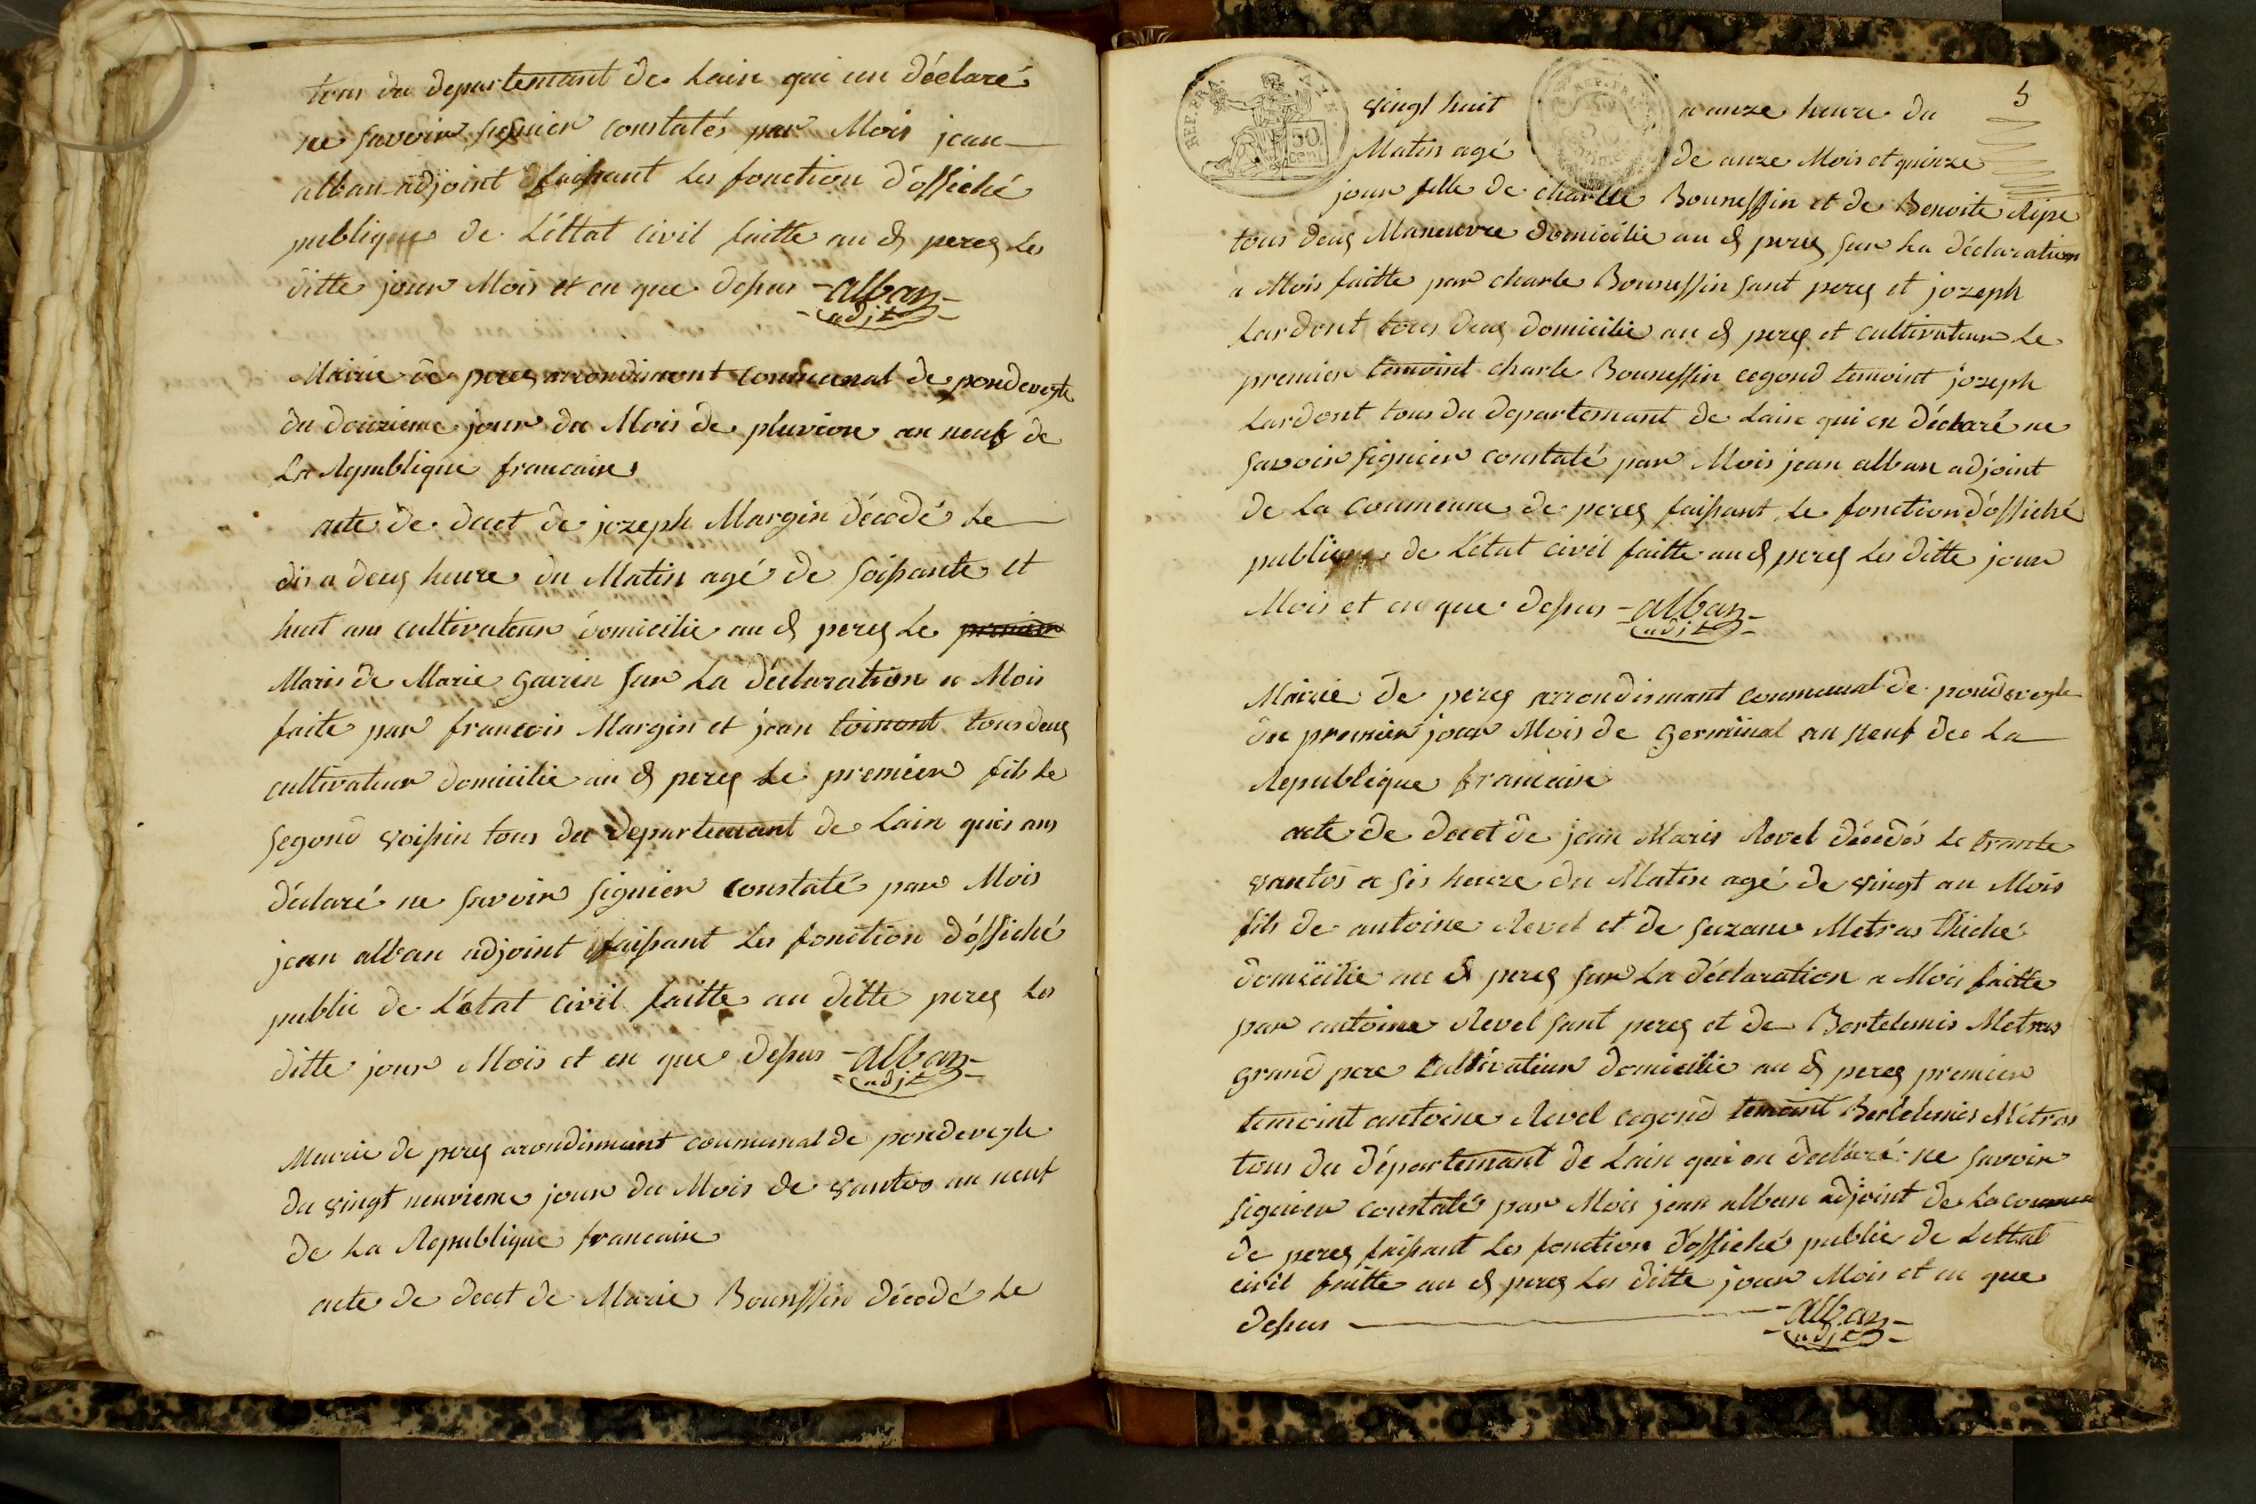 tous du departemant de Lain qui on déclaré
ne savoir signier constatés par Mois jean
alban adjoint faissant les fonction d'offiché
publique de L'éttat civil faitte au d perex Les
ditte jour Mois et en que dessus - alban -
adjt
Mairie de perex arrondimont communal de pondeveyle
du douzieme jour du Mois de pluviôse an neuf de
La Republique francaise
acte de decet de jozeph Margin décédé Le
dis a deux heure du Matin agé de soissante et
huit ans cultivateur domicilie au d perex Le premier
Maris de Marie gavrin sur La déclaration a Mois
faite par francois Margin et jean toinont tous deux
cultivateur domicilie au d perex Le premier fils le
segond voissin tous du departemant de Lain quis ons
déclaré ne savoir signier constaté par Mois
jean alban adjoint faissant Les fonction d'offiché
public de L'état civil faitte au ditte perex Les
ditte jour Mois et en que dessus - alban -
adjt
Mairie de perex arondismant communal de pondeveyle
du vingt neuvieme jour du Mois de vantos an neuf
de La Republique francaise
acte de decet de Marie Bounssin décédé Le
5
REP. FRA.
50
cent
REP. FRA.
vingt huit a onze heure du
Matin agé de onze Mois et quinze
jour fille de charle Bounessin et de Benoite Ripe
tous deux Maneuvre domicilie au d perex sur La déclaration
a Mois faitte par charle Bounessin sont perex et jozeph
Lardont tous deux domicilie au d perex et cultivateur Le
premier temoint charle Bounessin cegond temoint jozeph
Lardont tous du departemant de Lain qui on déclaré ne
savoir signier constaté par Mois jean alban adjoint
de La commune de perex faissant Le fonction d'offiché
publique de L'état civil faitte au d perex Les ditte jour
Mois et en que dessus - alban -
adjt
Mairie de perex arrondismant communal de pondeveyle
du premier jour Mois de germinal an neuf de La
Republique francaise
acte de decet de jean Maris Revel décédés Le trante
vantos a sis heure du Matin agé de vingt un Mois
fils de antoine Revel et de suzane Metras
domicilie au d perex sur La déclaration a Mois faitte
par antoine Revel sont perex et de Bertelemis Metras
grand pere cultivatieur domicilie au d perex premier
temoint antoine Revel cegond temoint Bertelemis Métras
tous du départemant de Lain qui on declaré ne savoir
signier constaté par Mois jean alban adjoint de La commune
de perex faissant Les fonction d'offiché public de L'ettat
civil faitte au d perex Les ditte jour Mois et en que
dessus - alban -
adjt